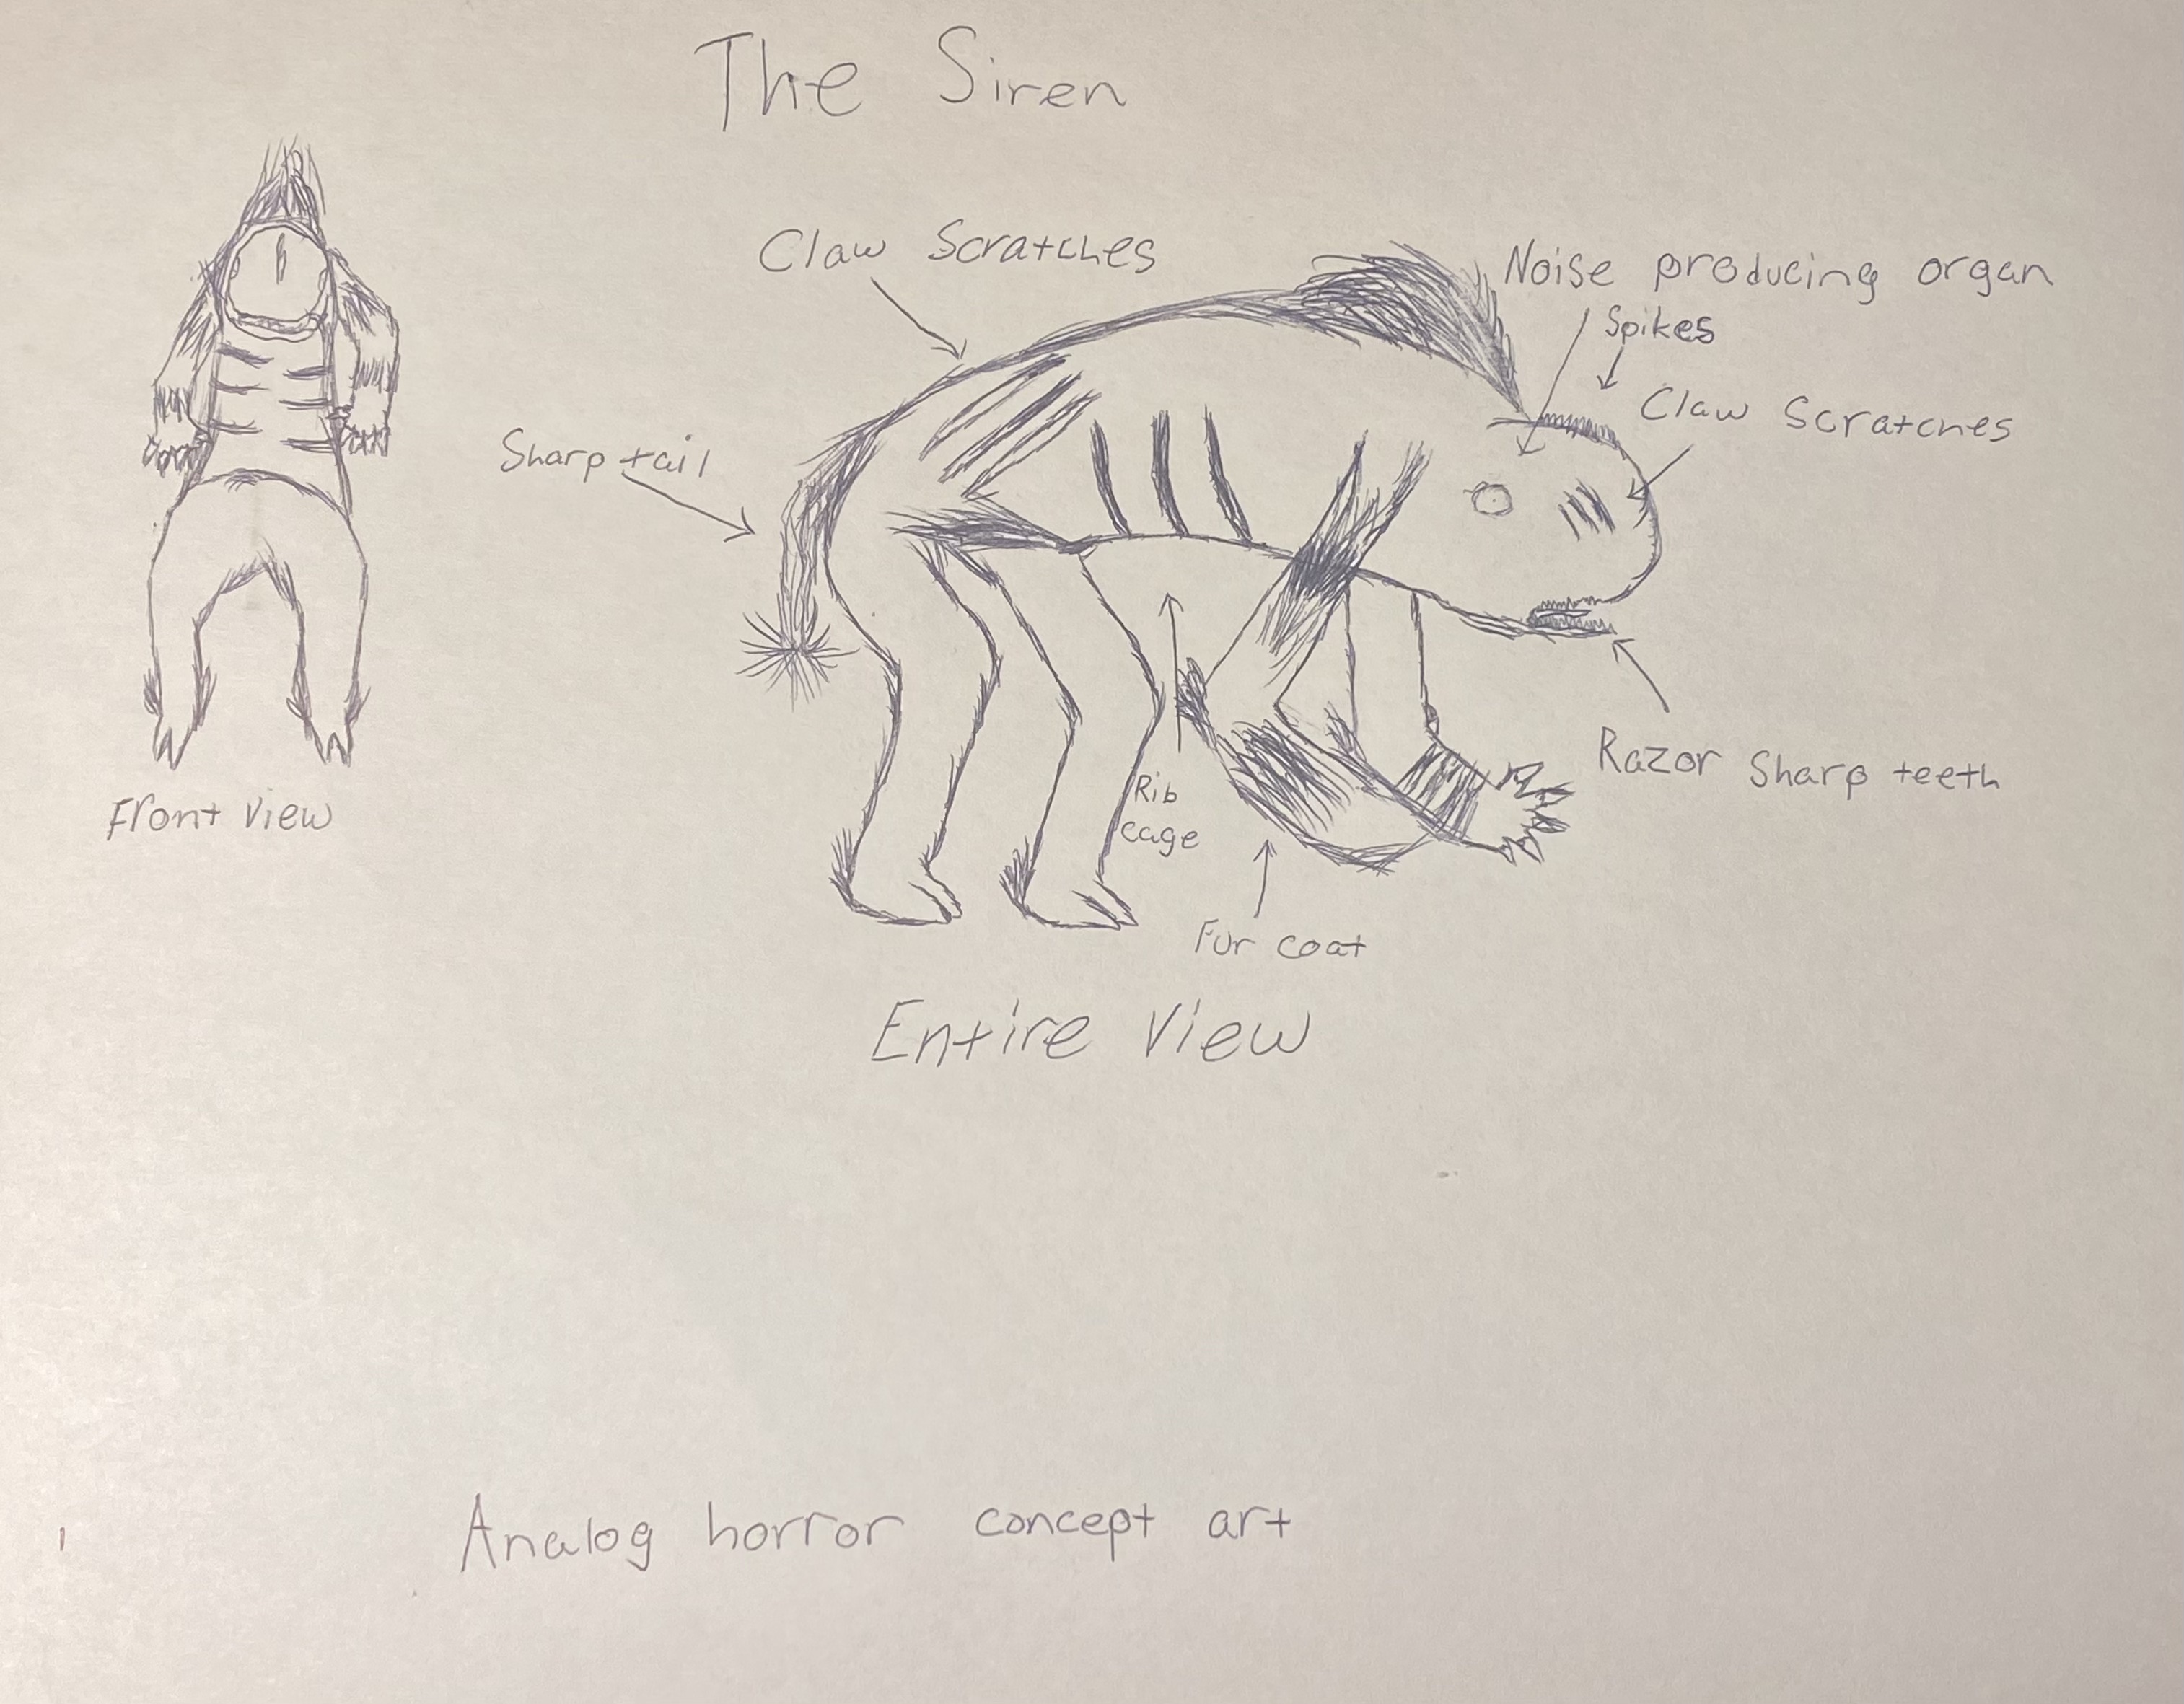 The Siren
Claw Scratches
Noise producing organ
Spikes
Claw Scratches
Sharp tail
Razor Sharp teeth
Rib
cage
Front View
Fur coat
Entire View
Analog horror concept art